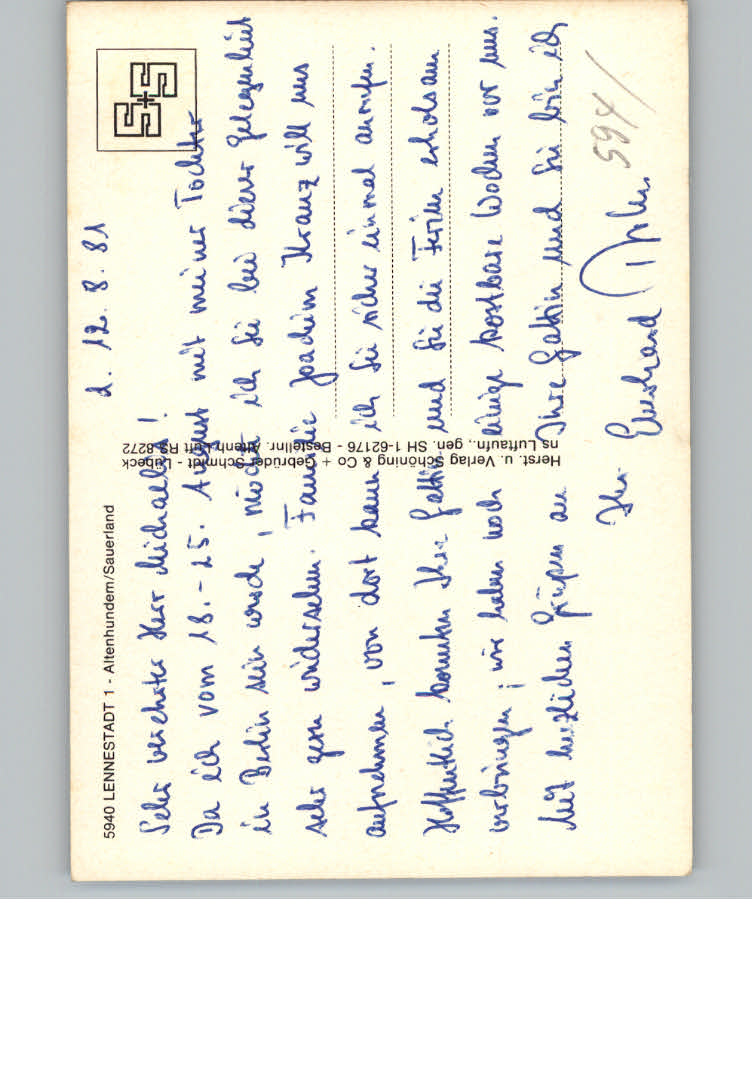 5940 LENNESTADT 1 - Altenhundem/Sauerland
d. 12. 8. 81
Sehr verehrter Herr Michaelis!
Da ich vom 18. - 25. August mit meiner Tochter
in Berlin sein werde, möchte ich Sie bei dieser Gelegenheit
sehr gern wiedersehen. Familie Joachim Kranz will uns
aufnehmen, von dort kann ich Sie sicher einmal anrufen.
Hoffentlich konnten Ihre Gattin und Sie die Ferien erholsam
verbringen; wir haben noch einige kostbare Wochen vor uns.
Mit herzlichen Grüßen an Ihre Gattin und Sie bin ich
Ihr Eberhard
594/
Herst. u. Verlag Schöning & Co + Gebrüder Schmidt - Lübeck
ns Luftaufn., gen. SH 1-62176 - Bestellnr. Altenh Luft RS 8272
S+S